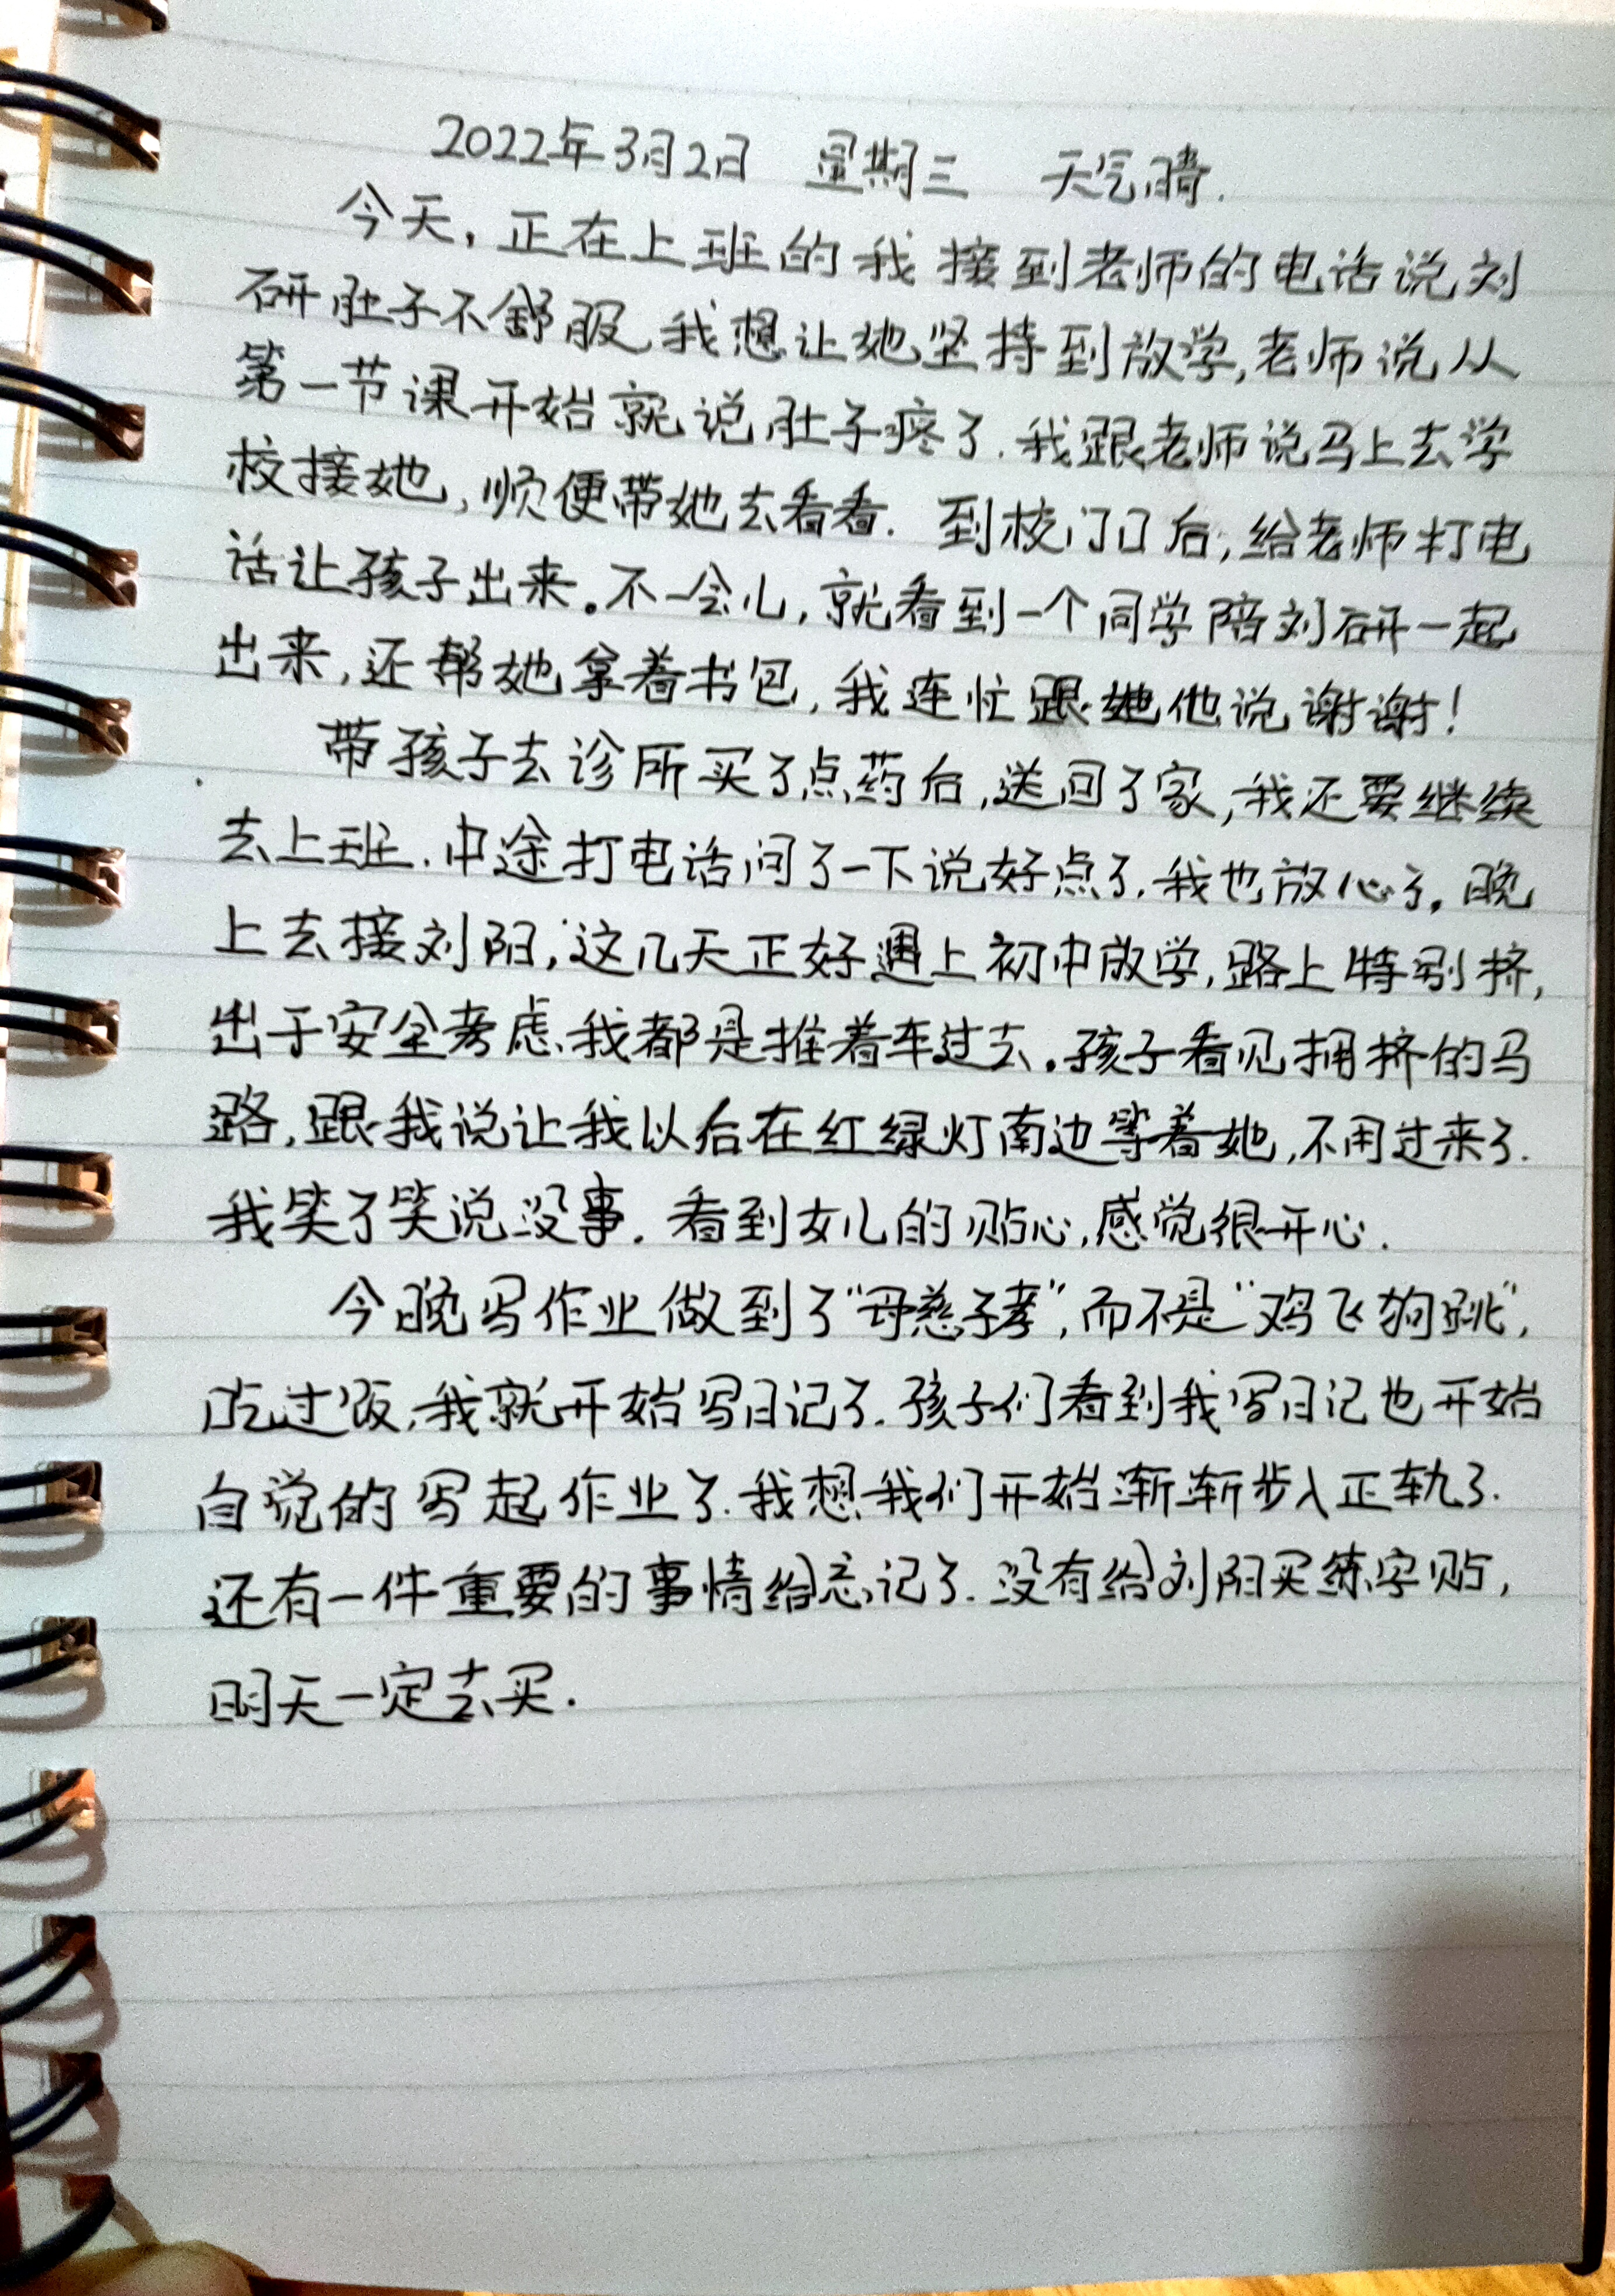 2022年3月2日 星期三 天气晴.
今天,正在上班的我接到老师的电话说刘
研肚子不舒服,我想让她坚持到放学,老师说从
第一节课开始就说肚子疼了.我跟老师说马上去学
校接她,顺便带她去看看. 到校门口后,给老师打电
话让孩子出来。不一会儿,就看到一个同学陪刘研一起
出来,还帮她拿着书包,我连忙跟她他说谢谢!
带孩子去诊所买了点药后,送回了家,我还要继续
去上班.中途打电话问了一下说好点了.我也放心了。晚
上去接刘阳,这几天正好遇上初中放学,路上特别挤,
出于安全考虑,我都是推着车过去。孩子看见拥挤的马
路,跟我说让我以后在红绿灯南边等着她,不用过来了.
我笑了笑说没事. 看到女儿的贴心,感觉很开心.
今晚写作业做到了“母慈子孝”,而不是“鸡飞狗跳”,
吃过饭,我就开始写日记了.孩子们看到我写日记也开始
自觉的写起作业了.我想我们开始渐渐步入正轨了.
还有一件重要的事情给忘记了.没有给刘阳买练字贴,
明天一定去买.